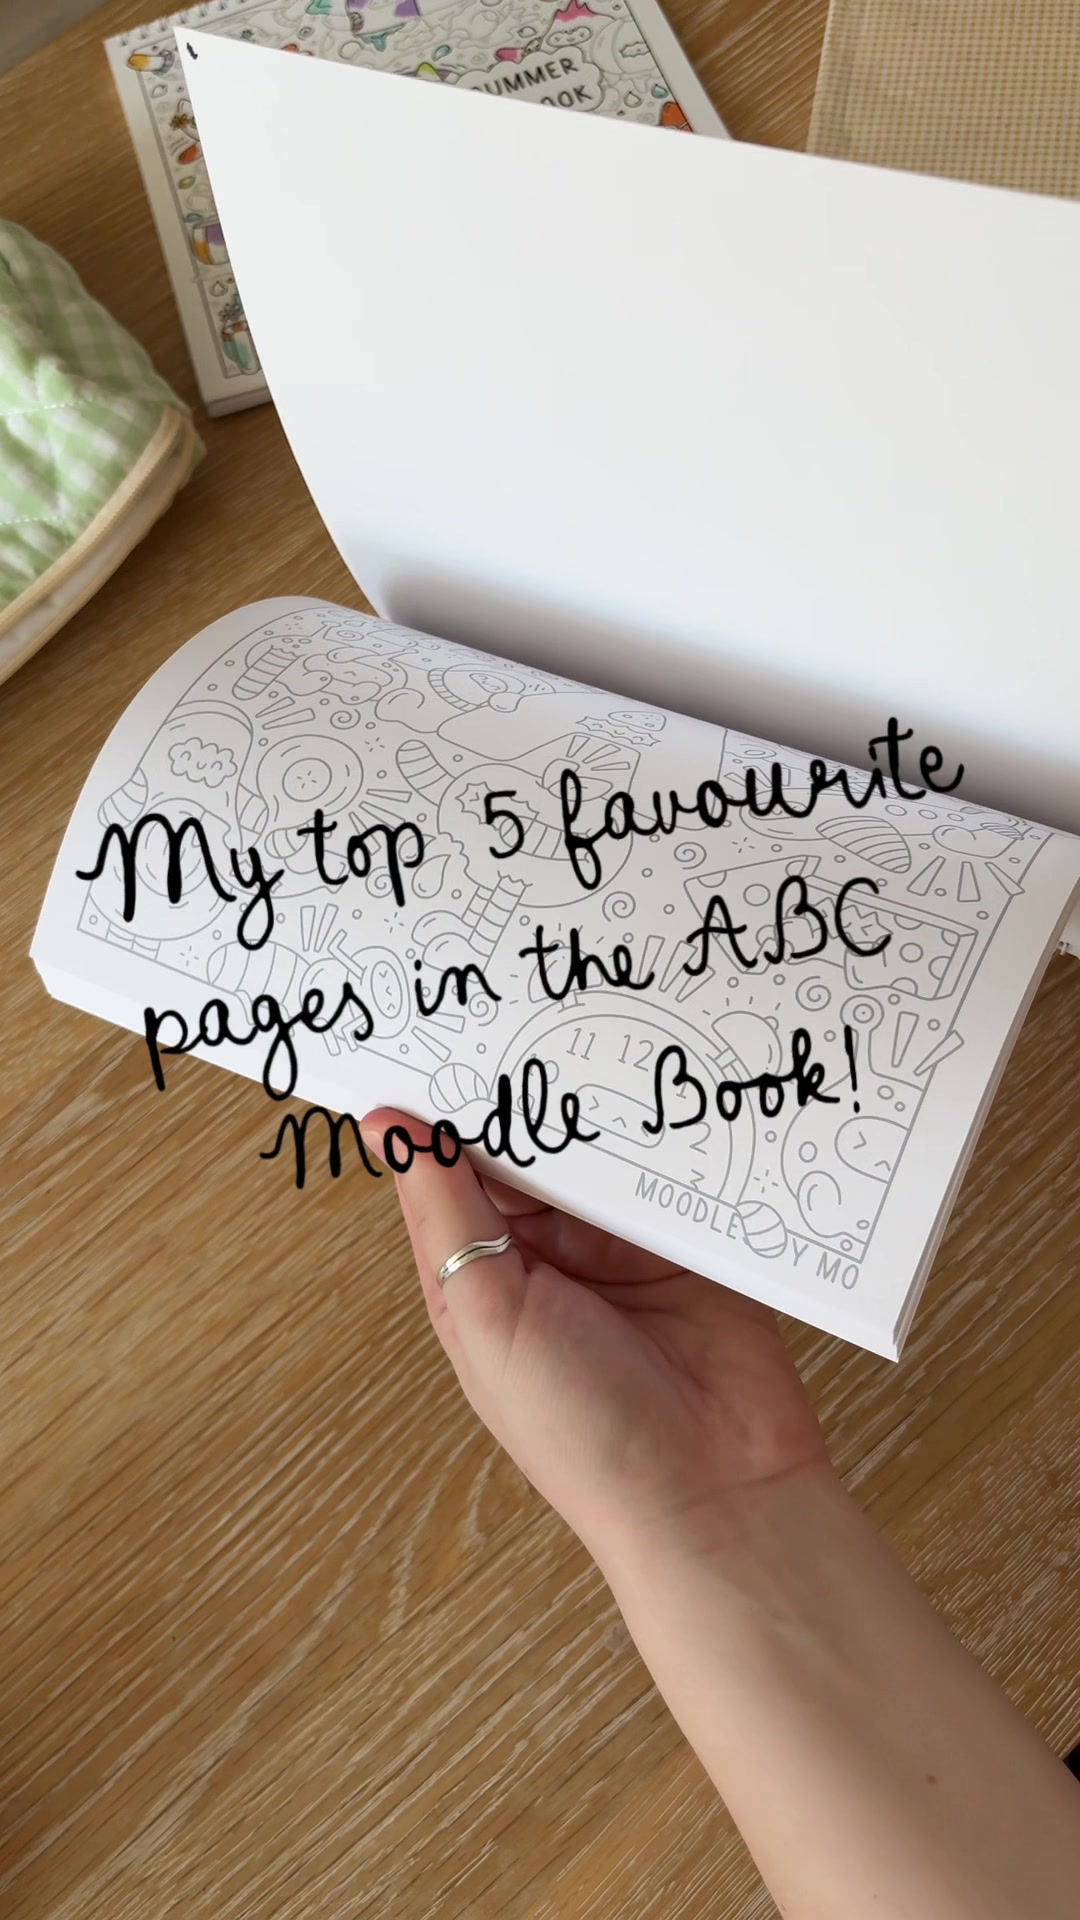 SUMMER
OOK
My top 5 favourite
pages in the ABC
Moodle Book!
11 12 1
2
3
MOODLE Y MO